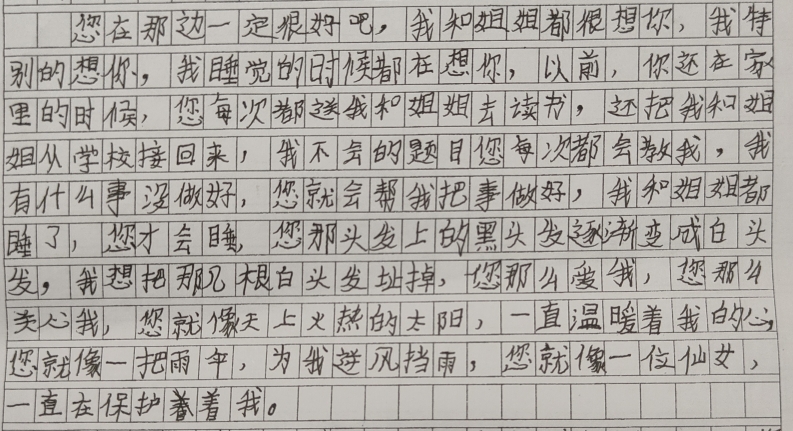 您在那边一定很好吧，我和姐姐都很想你，我特
别的想你，我睡觉的时候都在想你，以前，你还在家
里的时候，您每次都送我和姐姐去读书，还把我和姐
姐从学校接回来，我不会的题目您每次都会教我，我
有什么事没做好，您就会帮我把事做好，我和姐姐都
睡了，您才会睡，您那头发上的黑头发逐渐变成白头
发，我想把那几根白头发扯掉，您那么爱我，您那么
关心我，您就像天上火热的太阳，一直温暖着我的心，
您就像一把雨伞，为我遮风挡雨，您就像一位仙女，
一直在保护着我。